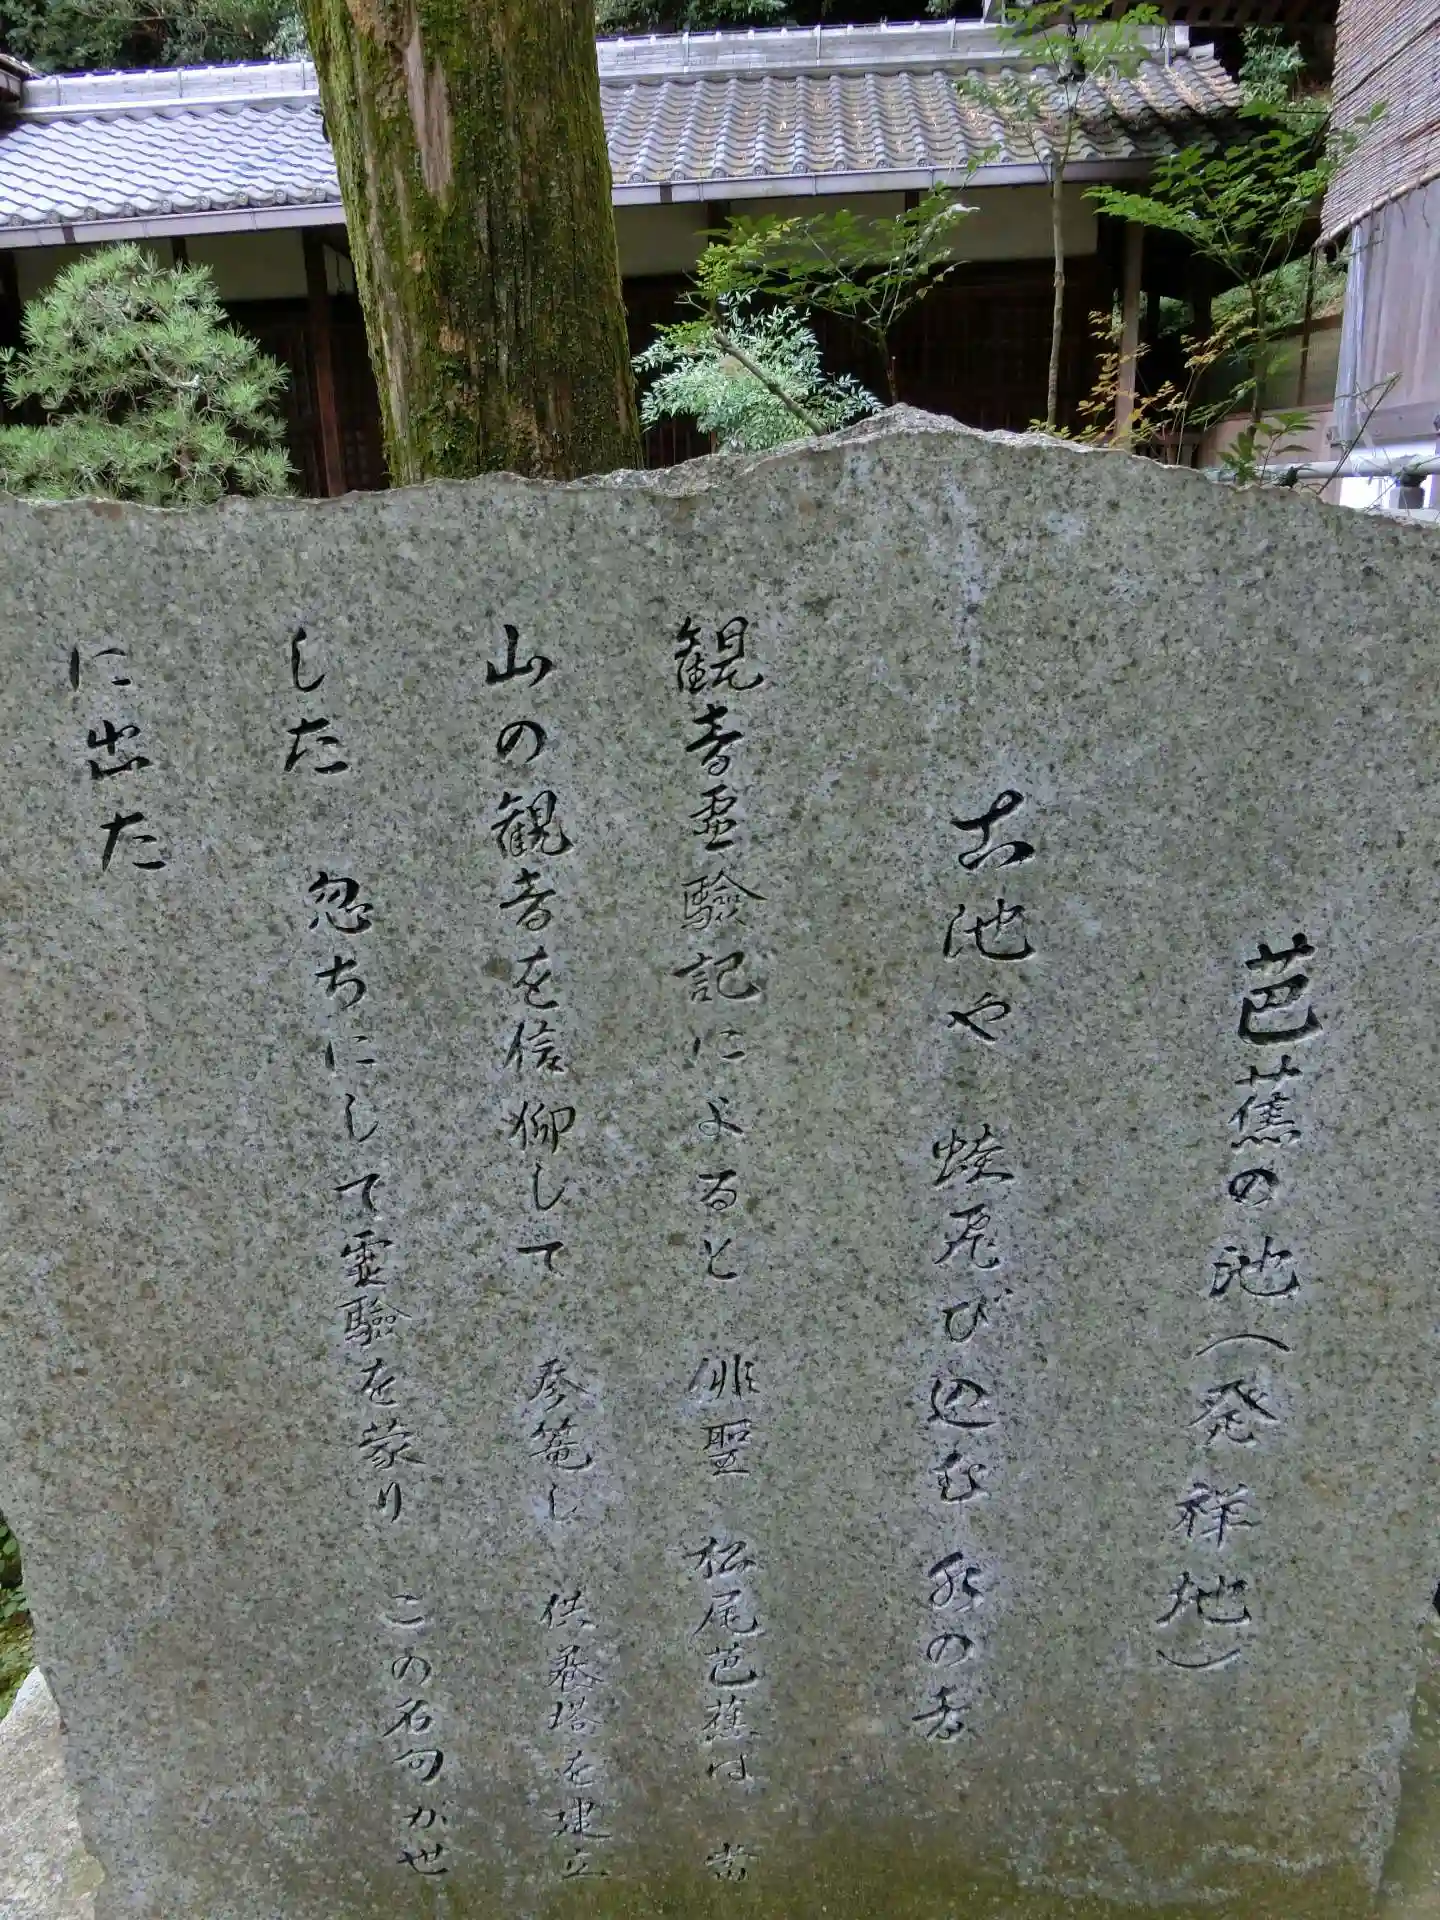 芭蕉の池(発祥地)
古池や 蛙飛び込む 水の音
観音霊験記によると 俳聖 松尾芭蕉は 当
山の観音を信仰して 参篭し 供養塔を建立
した 忽ちにして霊験を蒙り この名句が世
に出た